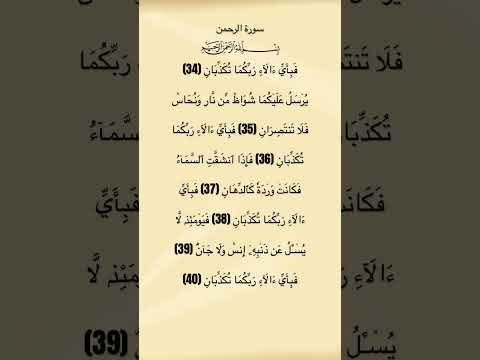 سورة الرحمن
بِسْمِ ٱللَّهِ ٱلرَّحْمَٰنِ ٱلرَّحِيمِ
فَبِأَيِّ ءَالَآءِ رَبِّكُمَا تُكَذِّبَانِ (34)
يُرْسَلُ عَلَيْكُمَا شُوَاظٌ مِّن نَّارٍ وَنُحَاسٌ
فَلَا تَنتَصِرَانِ (35) فَبِأَيِّ ءَالَآءِ رَبِّكُمَا
تُكَذِّبَانِ (36) فَإِذَا ٱنشَقَّتِ ٱلسَّمَآءُ
فَكَانَتْ وَرْدَةً كَٱلدِّهَانِ (37) فَبِأَيِّ
ءَالَآءِ رَبِّكُمَا تُكَذِّبَانِ (38) فَيَوْمَئِذٍ لَّا
يُسْـَٔلُ عَن ذَنۢبِهِۦٓ إِنسٌ وَلَا جَآنٌّ (39)
فَبِأَيِّ ءَالَآءِ رَبِّكُمَا تُكَذِّبَانِ (40)